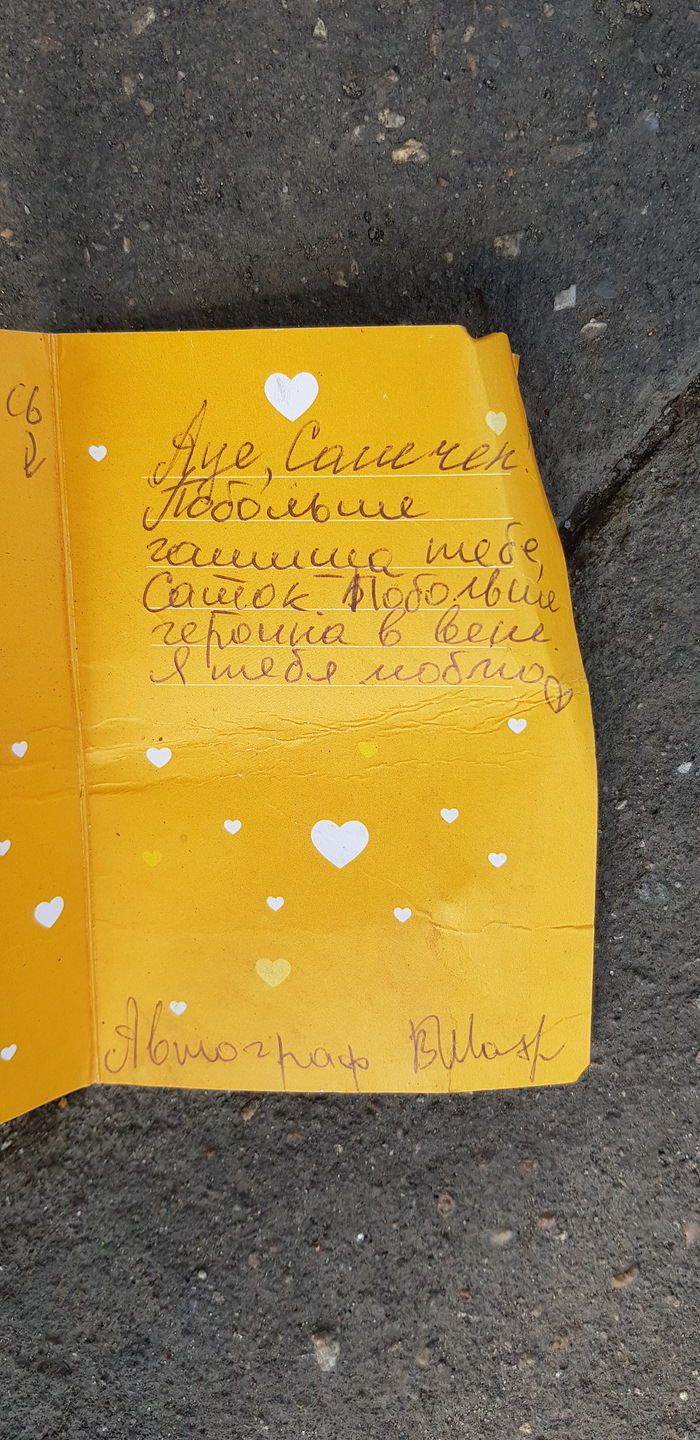 сь
Ауе, Санечек
Побольше
гашиша тебе,
Саток Побольше
героина в вене
Я тебя люблю
Автограф